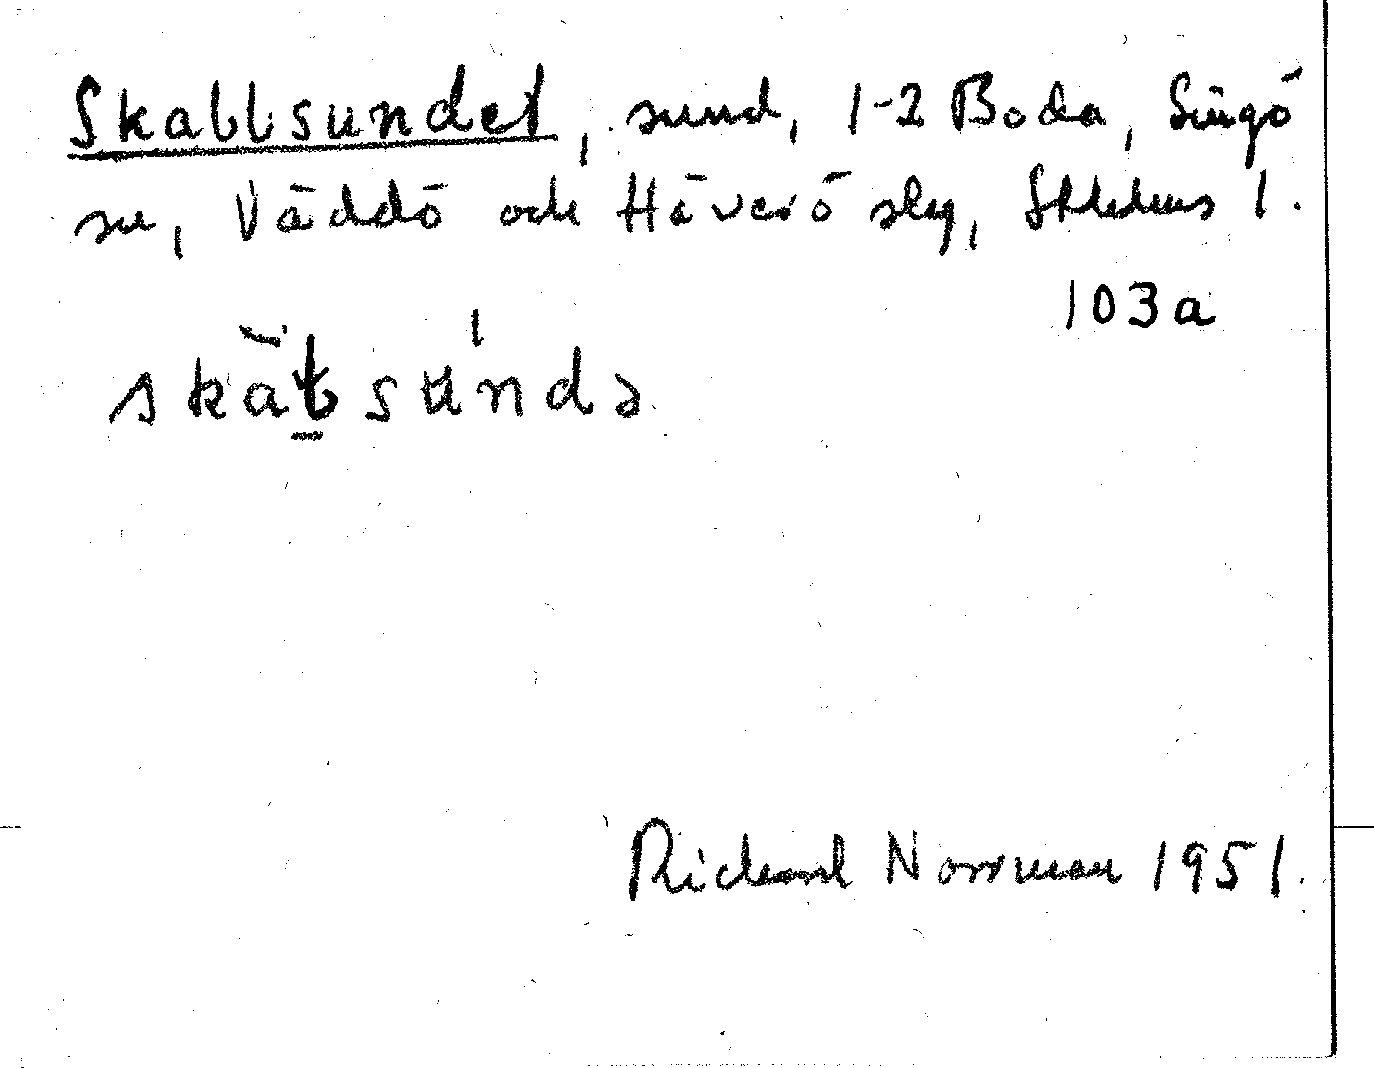 Skallsundet, sund, 1-2 Boda, Singö
sn, Väddö och Häverö slg, Sthlms l.
103a
skàłsúndə
Rickard Norrman 1951.